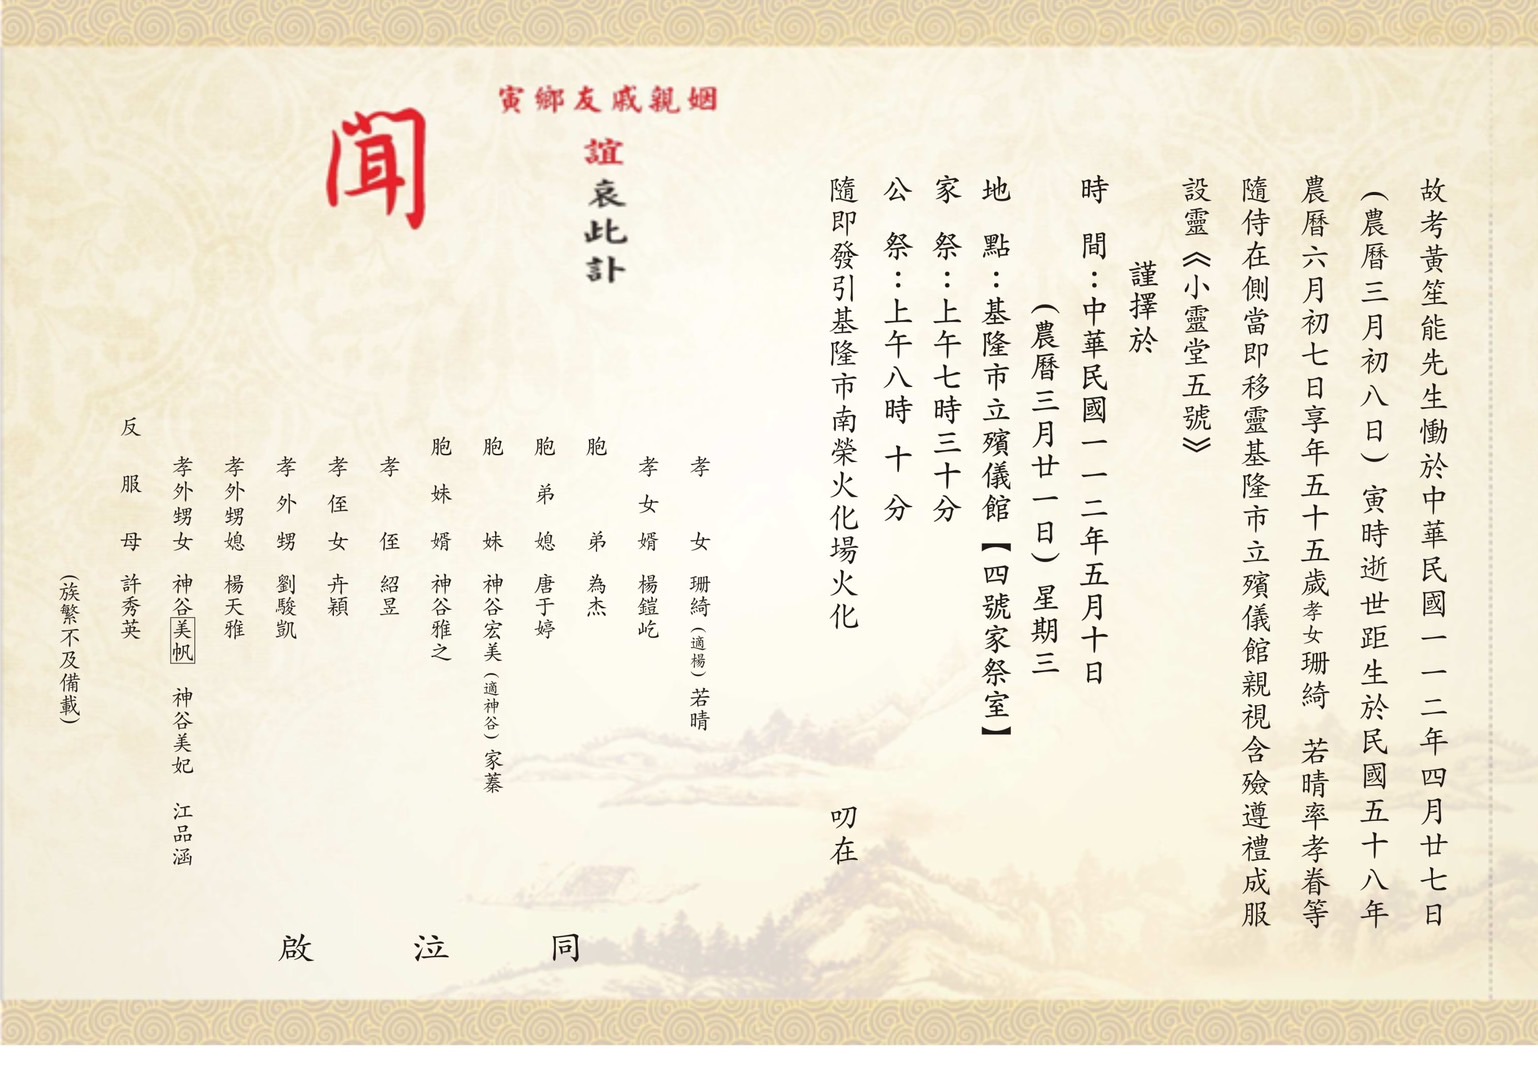 故考黃笙能先生慟於中華民國一一二年四月廿七日
(農曆三月初八日)寅時逝世距生於民國五十八年
農曆六月初七日享年五十五歲孝女珊綺 若晴率孝眷等
隨侍在側當即移靈基隆市立殯儀館親視含殮遵禮成服
設靈《小靈堂五號》
謹擇於
時 間：中華民國一一二年五月十日
(農曆三月廿一日)星期三
地 點：基隆市立殯儀館【四號家祭室】
家 祭：上午七時三十分
公 祭：上午八時 十 分
隨即發引基隆市南榮火化場火化 叨在
姻親戚友鄉寅
誼哀此訃
聞
孝 女 珊綺(適楊)若晴
孝女婿 楊鎧屹
胞 弟 為杰
胞弟媳 唐于婷
胞 妹 神谷宏美(適神谷)家蓁
胞妹婿 神谷雅之
孝 侄 紹昱
孝侄女 卉穎
孝外甥 劉駿凱
孝外甥媳 楊天雅
孝外甥女 神谷美帆 神谷美妃 江品涵
反服母 許秀英
(族繁不及備載)
同 泣 啟